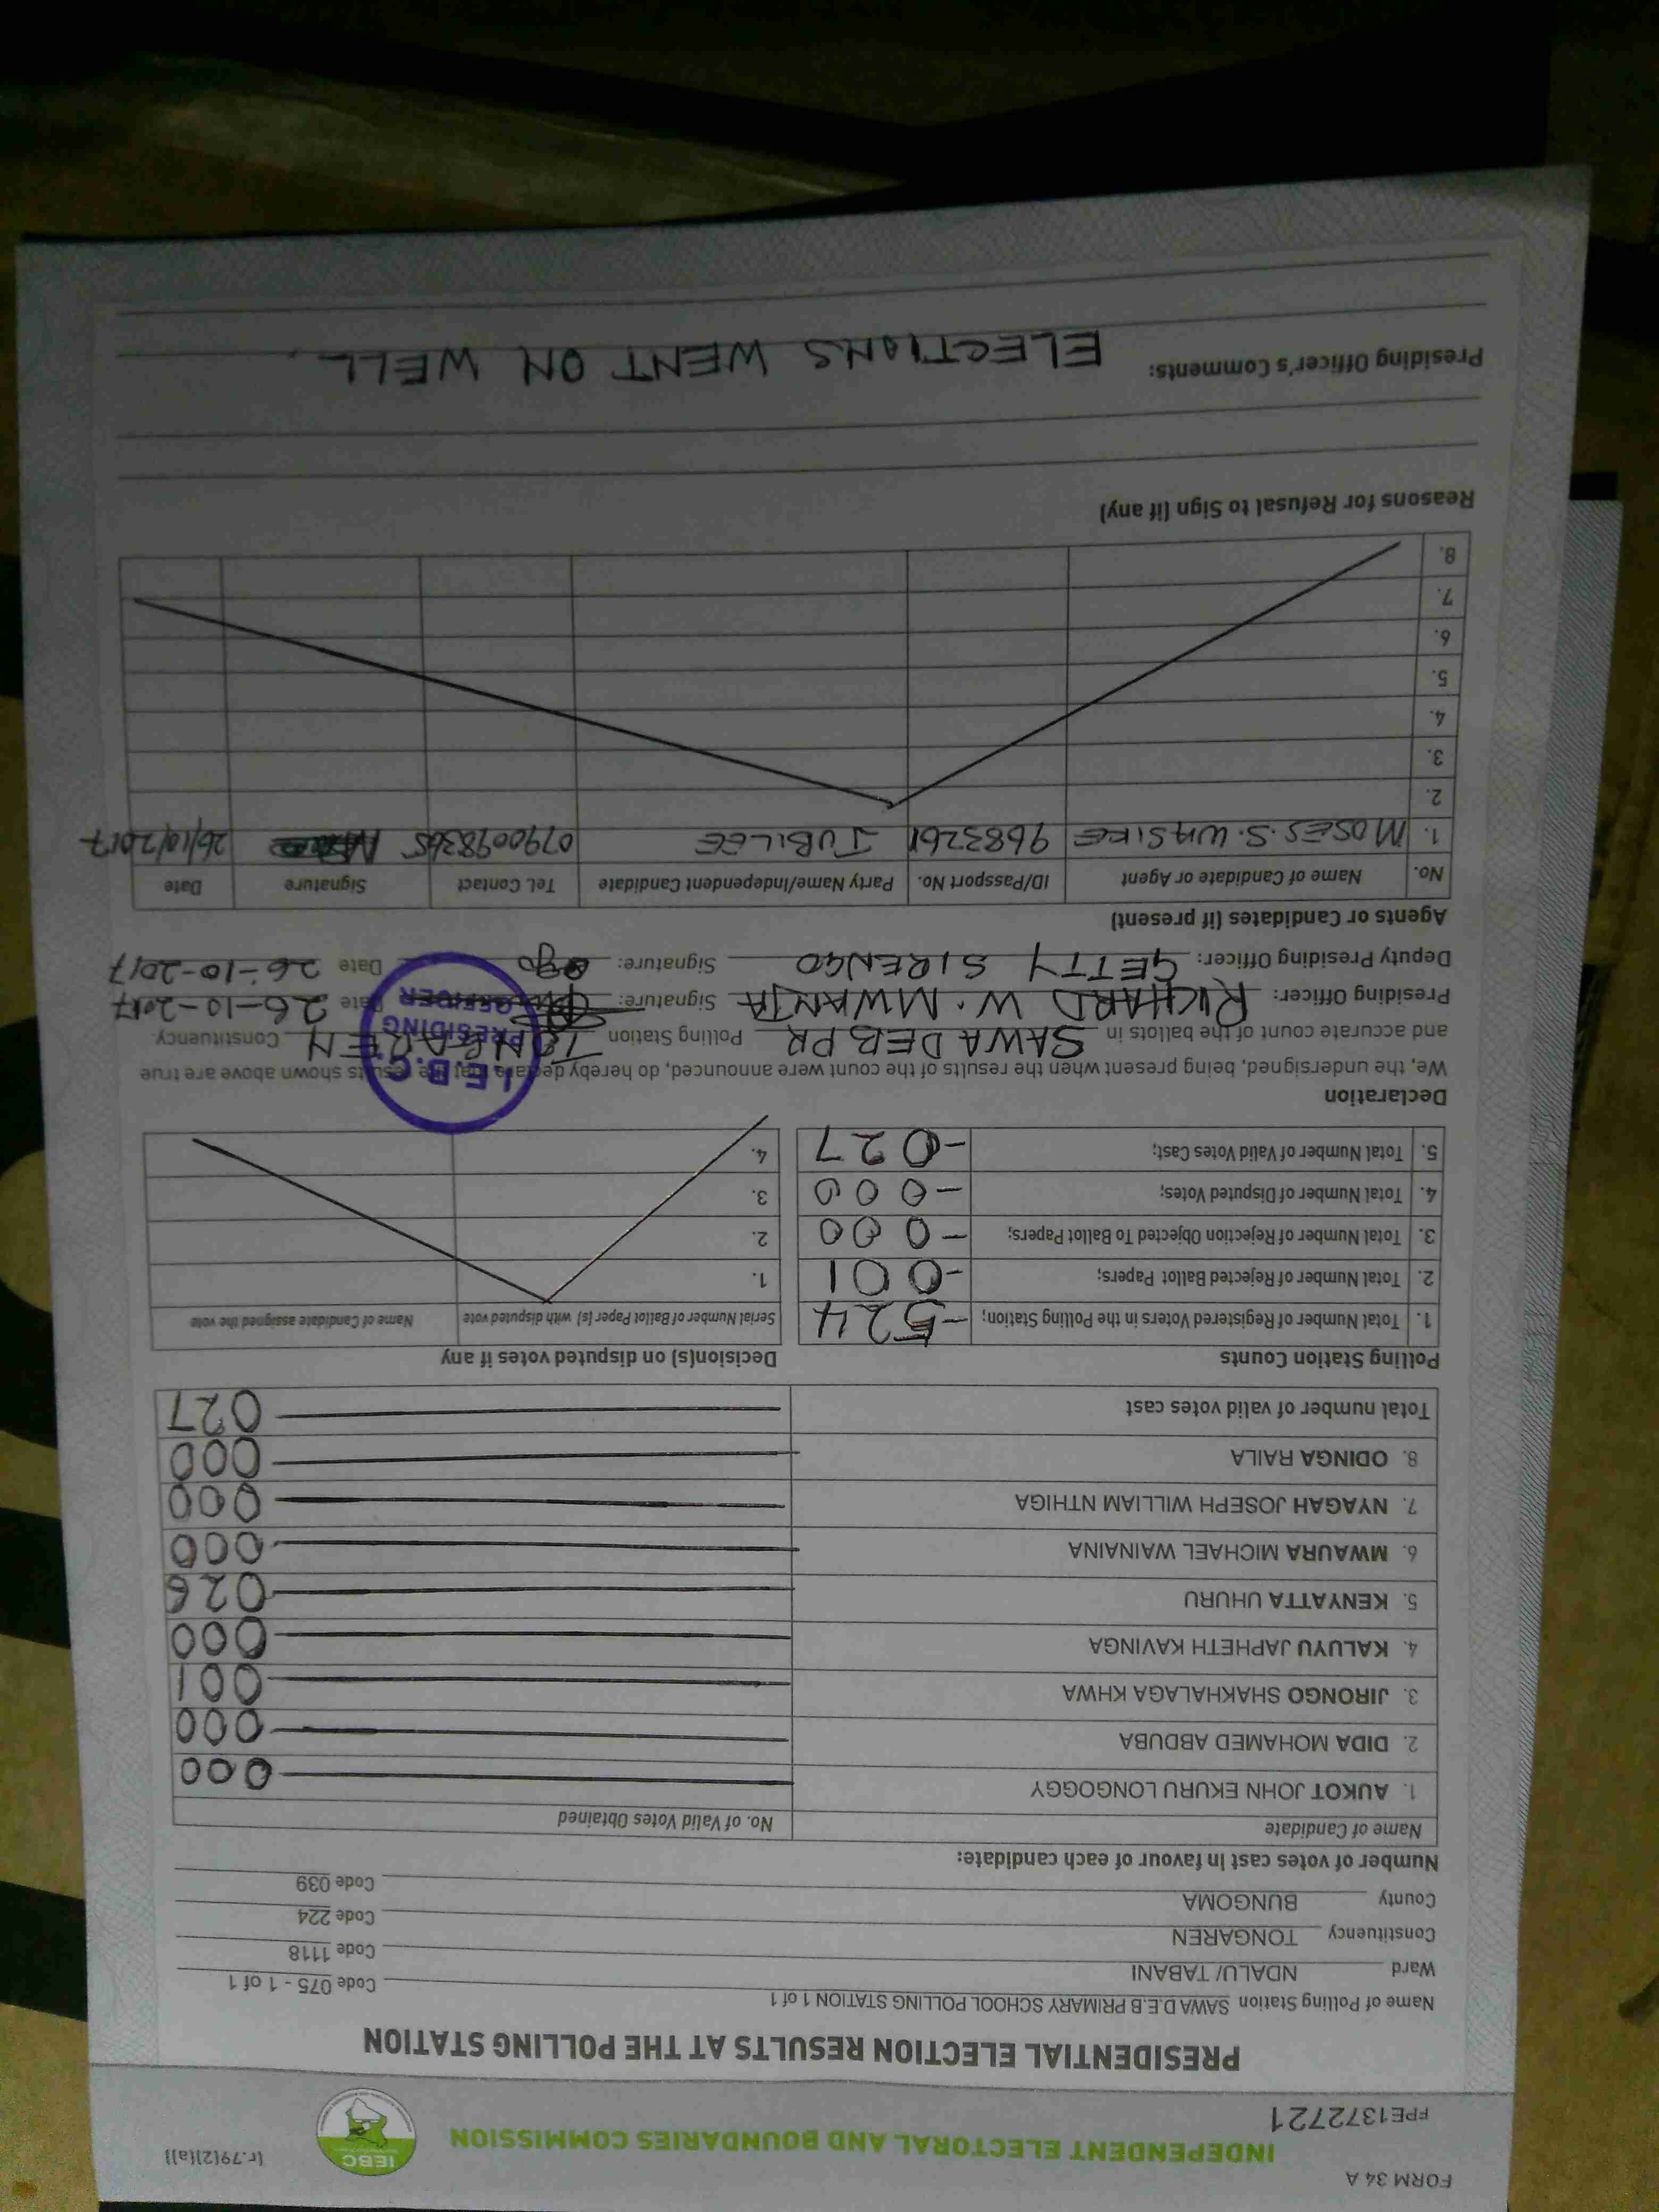 FORM 34 A
(r.79(2)(a))
INDEPENDENT ELECTORAL AND BOUNDARIES COMMISSION
IEBC
FPE1372721
PRESIDENTIAL ELECTION RESULTS AT THE POLLING STATION
Name of Polling Station SAWA D.E.B PRIMARY SCHOOL POLLING STATION 1 of 1 Code 075 - 1 of 1
Ward NDALU/ TABANI Code 1118
Constituency TONGAREN Code 224
County BUNGOMA Code 039
Number of votes cast in favour of each candidate:
Name of Candidate No. of Valid Votes Obtained
1. AUKOT JOHN EKURU LONGOGGY 000
2. DIDA MOHAMED ABDUBA 000
3. JIRONGO SHAKHALAGA KHWA 001
4. KALUYU JAPHETH KAVINGA 000
5. KENYATTA UHURU 026
6. MWAURA MICHAEL WAINAINA 000
7. NYAGAH JOSEPH WILLIAM NTHIGA 000
8. ODINGA RAILA 000
Total number of valid votes cast 027
Polling Station Counts
1. Total Number of Registered Voters in the Polling Station; -524
2. Total Number of Rejected Ballot Papers; -001
3. Total Number of Rejection Objected To Ballot Papers; -000
4. Total Number of Disputed Votes; -000
5. Total Number of Valid Votes Cast; -027
Decision(s) on disputed votes if any
Serial Number of Ballot Paper (s) with disputed vote Name of Candidate assigned the vote
1.
2.
3.
4.
Declaration
We, the undersigned, being present when the results of the count were announced, do hereby declare that the results shown above are true
and accurate count of the ballots in SAWA DEB PR Polling Station TONGAREN Constituency
Presiding Officer: RICHARD W. MWANJA Signature: Date 26-10-2017
Deputy Presiding Officer: GETTY SIRENGO Signature: Date 26-10-2017
I.E.B.C.
PRESIDING
OFFICER
Agents or Candidates (if present)
No. Name of Candidate or Agent ID/Passport No. Party Name/Independent Candidate Tel. Contact Signature Date
1. MOSES.S.WASIKE 9683261 JUBILEE 0790098365 26/10/2017
2.
3.
4.
5.
6.
7.
8.
Reasons for Refusal to Sign (if any)
Presiding Officer's Comments: ELECTIONS WENT ON WELL.